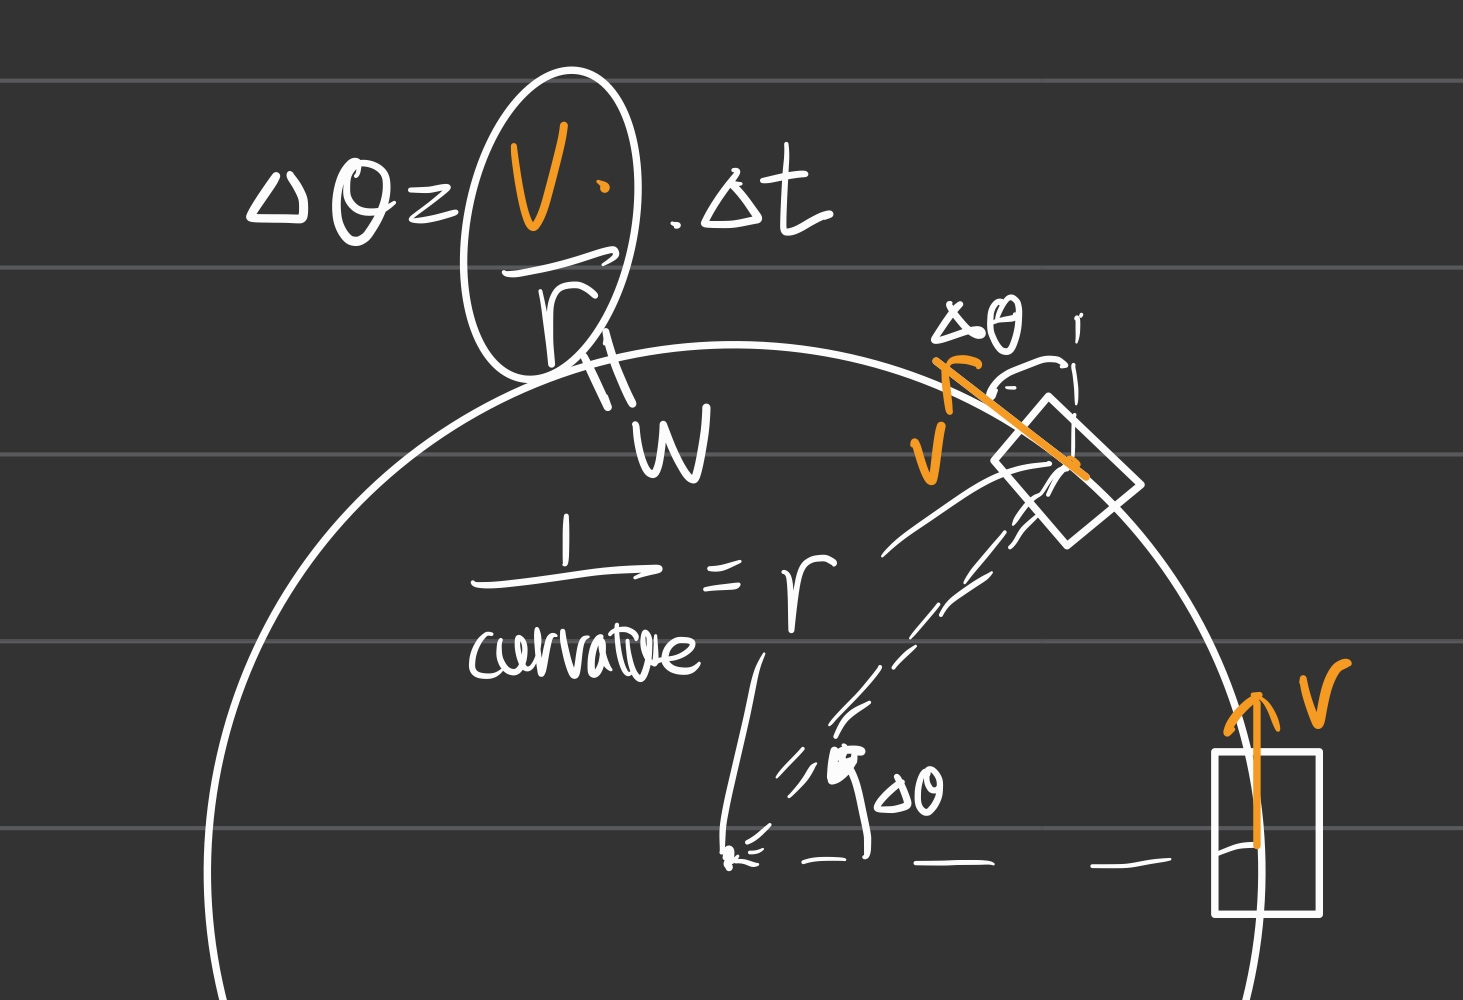 Δθ = V· / r · Δt
Δθ
V
W
1 / curvature = r
V
Δθ